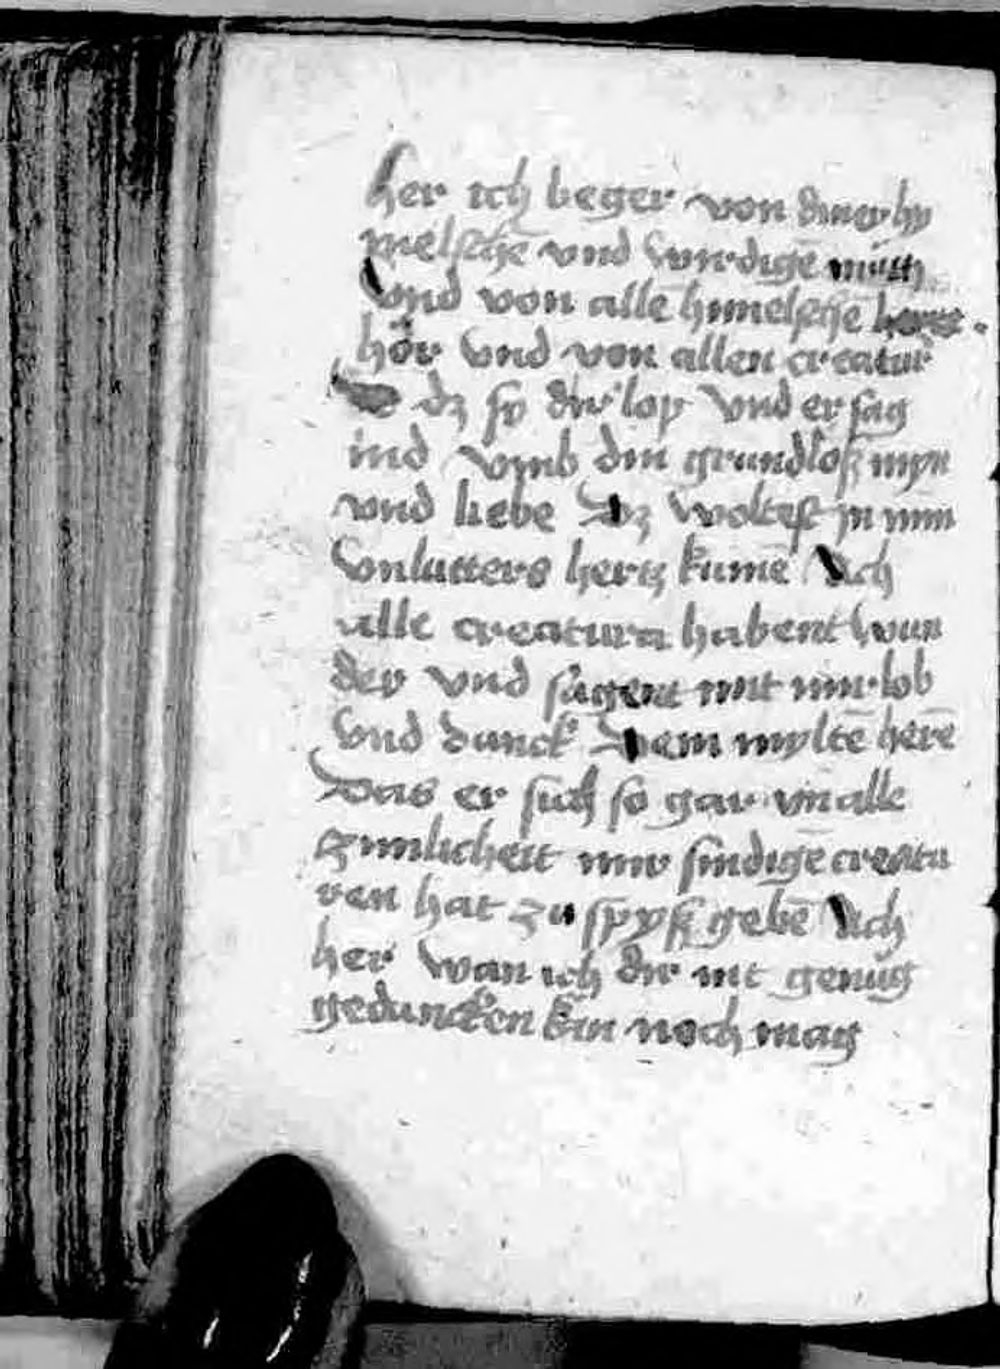 her ich beger von diner hy
melsche vnd wirdige mutt
vnd von alle himelsche
hör vnd von allen creatur
dz sy dir lop vnd er sag
ind vmb din grundloß myn
vnd liebe Dz woltest jn min
vnlutters hertz kume Ach
alle creatura habent wun
der vnd sagent mit mir lob
vnd danck Dem mylte here
Das er sich so gar vn alle
zimlicheit mir sindige creatu
ren hat zu spyß gebe Ach
her wan ich dir nit genug
gedancken kin noch mag